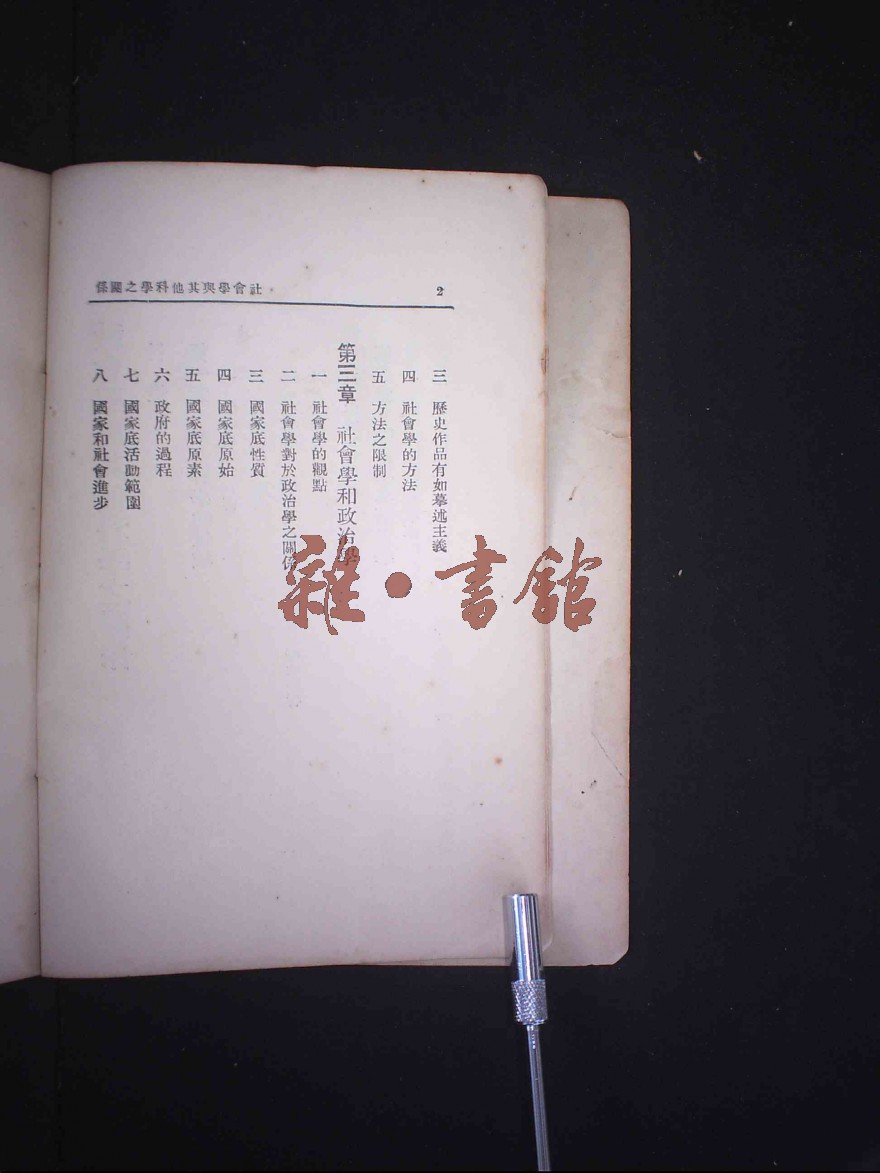 社會學與其他科學之關係
2
三 歷史作品有如摹述主義
四 社會學的方法
五 方法之限制
第三章 社會學和政治學
一 社會學的觀點
二 社會學對於政治學之關係
三 國家底性質
四 國家底原始
五 國家底原素
六 政府的過程
七 國家底活動範圍
八 國家和社會進步
雜·書館